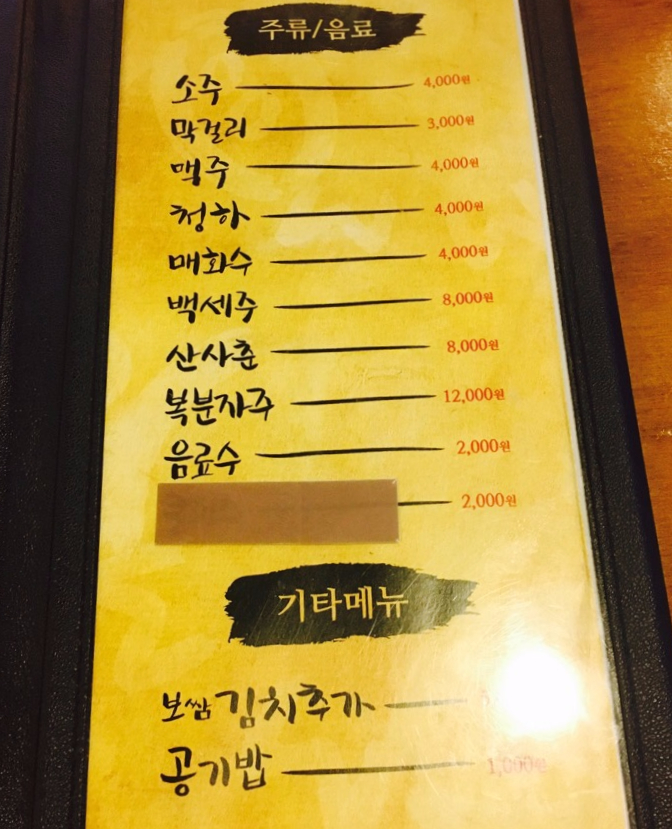 주류/음료
소주 4,000원
막걸리 3,000원
맥주 4,000원
청하 4,000원
매화수 4,000원
백세주 8,000원
산사춘 8,000원
복분자주 12,000원
음료수 2,000원
2,000원
기타메뉴
보쌈김치추가
공기밥 1,000원